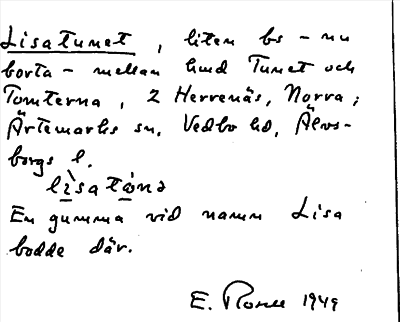 Lisatunet, liten bs - nu
borta - mellan hmd Tunet och
Tomterna, 2 Herrenäs, Norra;
Ärtemarks sn, Vedbo hd, Älvs-
borgs l.
lìsatönə
En gumma vid namn Lisa
bodde där.
E. 1949